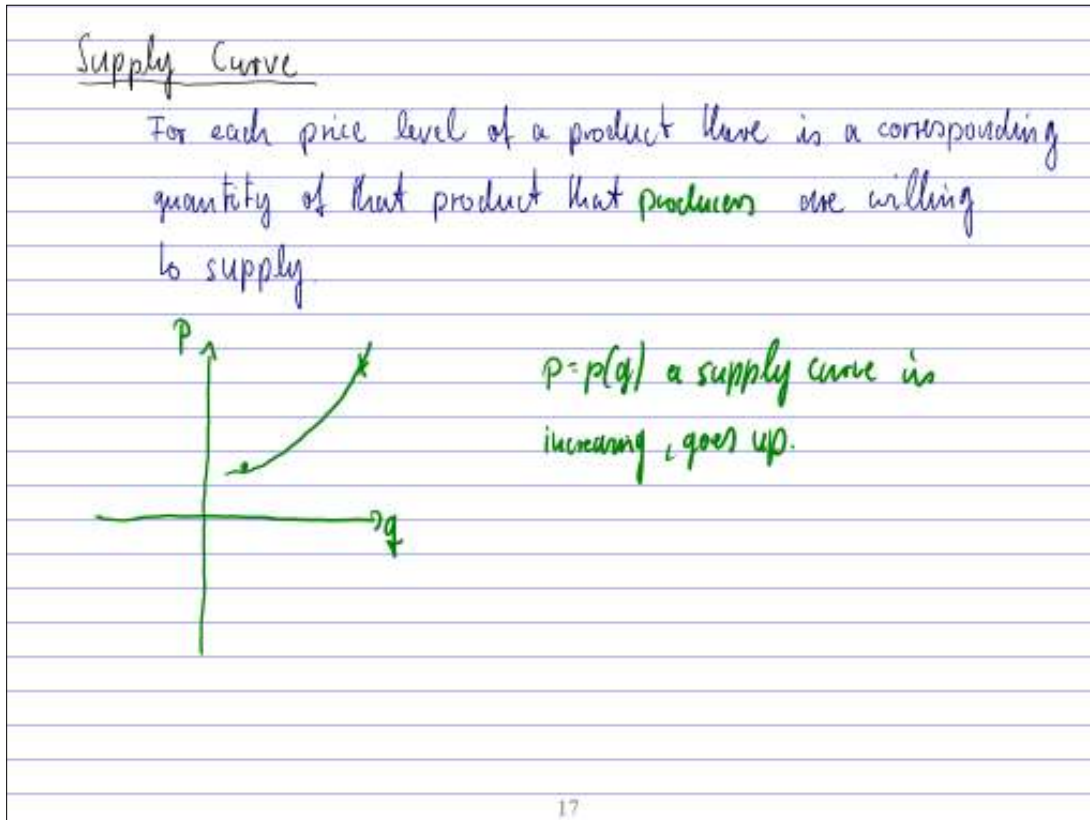 Supply Curve
For each price level of a product there is a corresponding
quantity of that product that producers are willing
to supply.
P
p=p(q) a supply curve is
increasing, goes up.
q
17